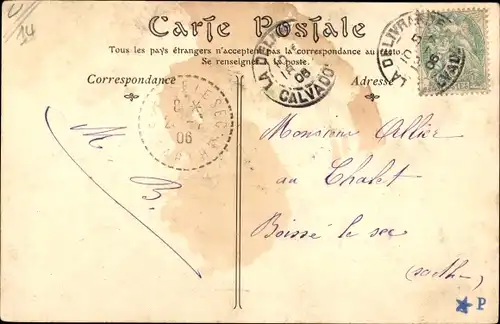 14
Carte Postale
Tous les pays étrangers n'acceptent pas la correspondance au recto.
Se renseigner à la poste.
Correspondance
Adresse
LA DELIVRANDE
CALVADOS
06
LA DELIVRANDE
CALVADOS
06
06
M. B.
Monsieur Allier
au Chalet
Boissé le sec
(Sarthe)
P